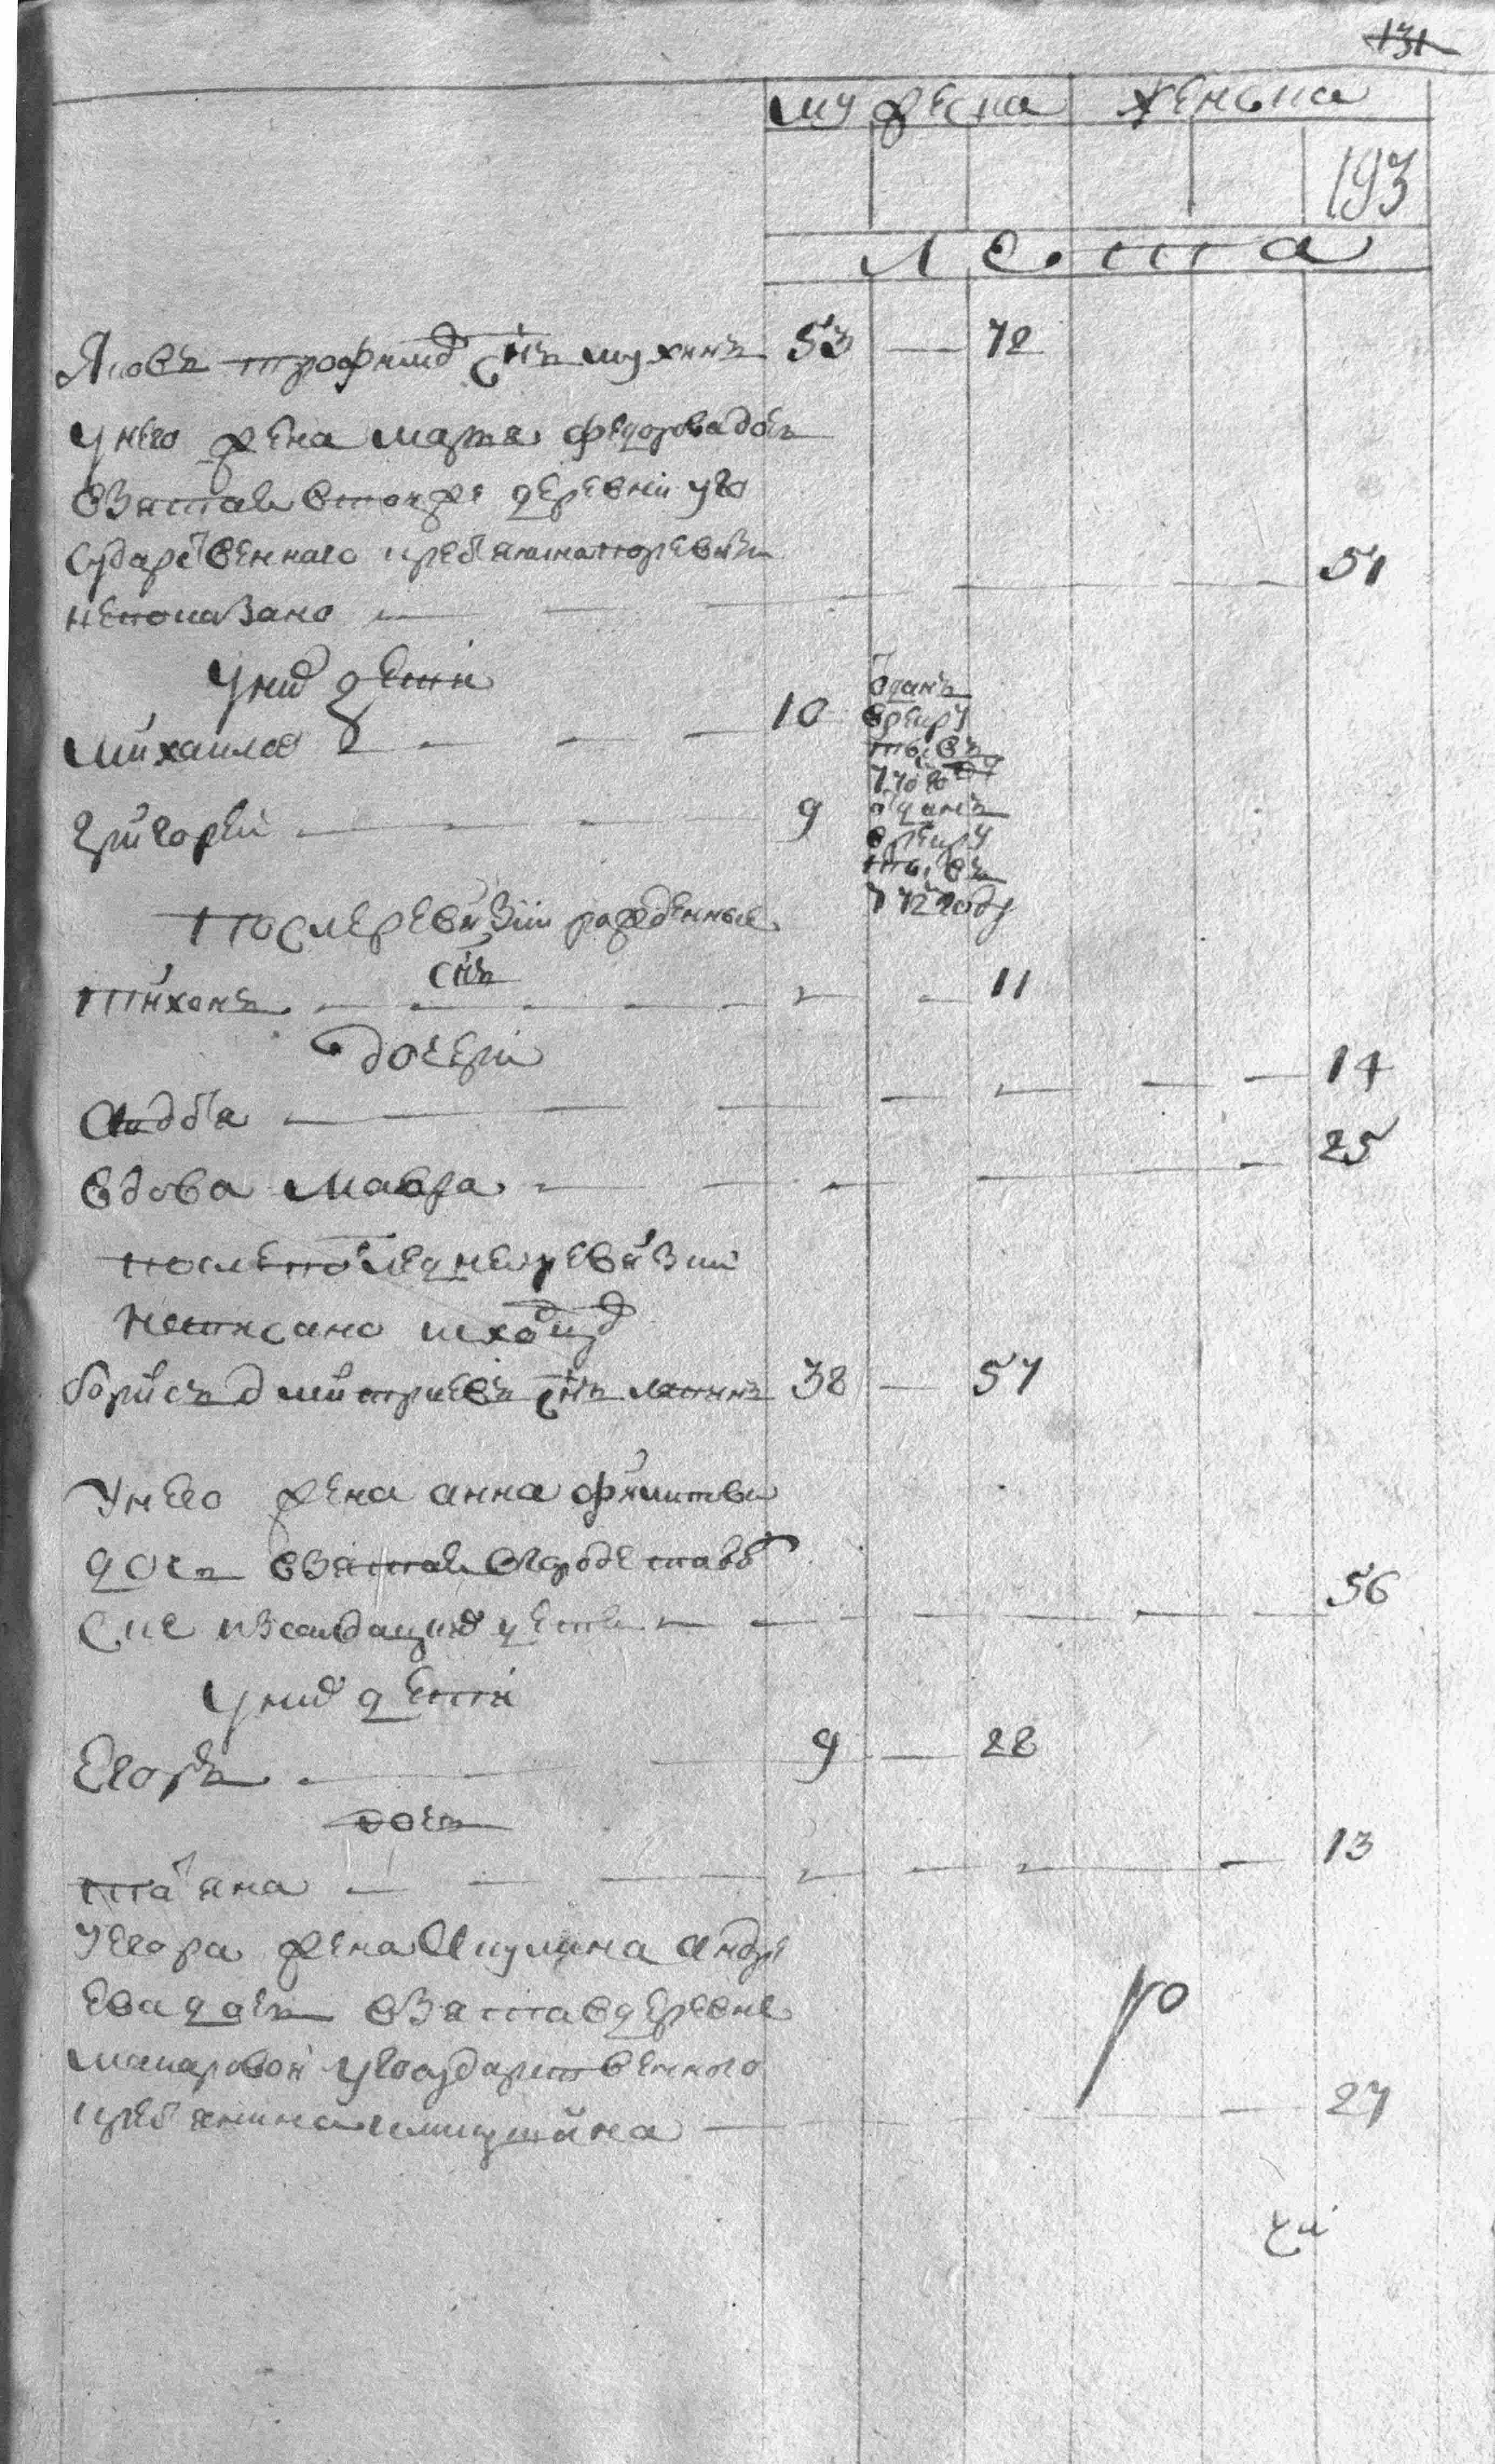 131
мужеска женска
193
лета
Яковъ трофимо снъ мухинъ 53 — 72
унего жена марѳа федорова дочь
взятая втойже деревни уго
сударственнаго крестьянина поревизи
непоказано — 51
уних дети
михаило 10 отданъ
врекру
ты, въ
770 году
григорей — 9 отданъ
врекру
ты, въ
772 году
послеревизии рожденные
снъ
тихонъ — 11
дочери
авдотья — 14
вдова мавра — 25
после последней ревизии
неписано
борисъ дмитриевъ снъ 38 — 57
унего жена анна филипова
дочь взятая вгороде
56
уних дети
Егоръ — 9 — 28
дочь
татьяна — 13
уегора жена Акулина андре
ева дочь взята вдеревне
макаровой угосударственного
крестьянина — 27